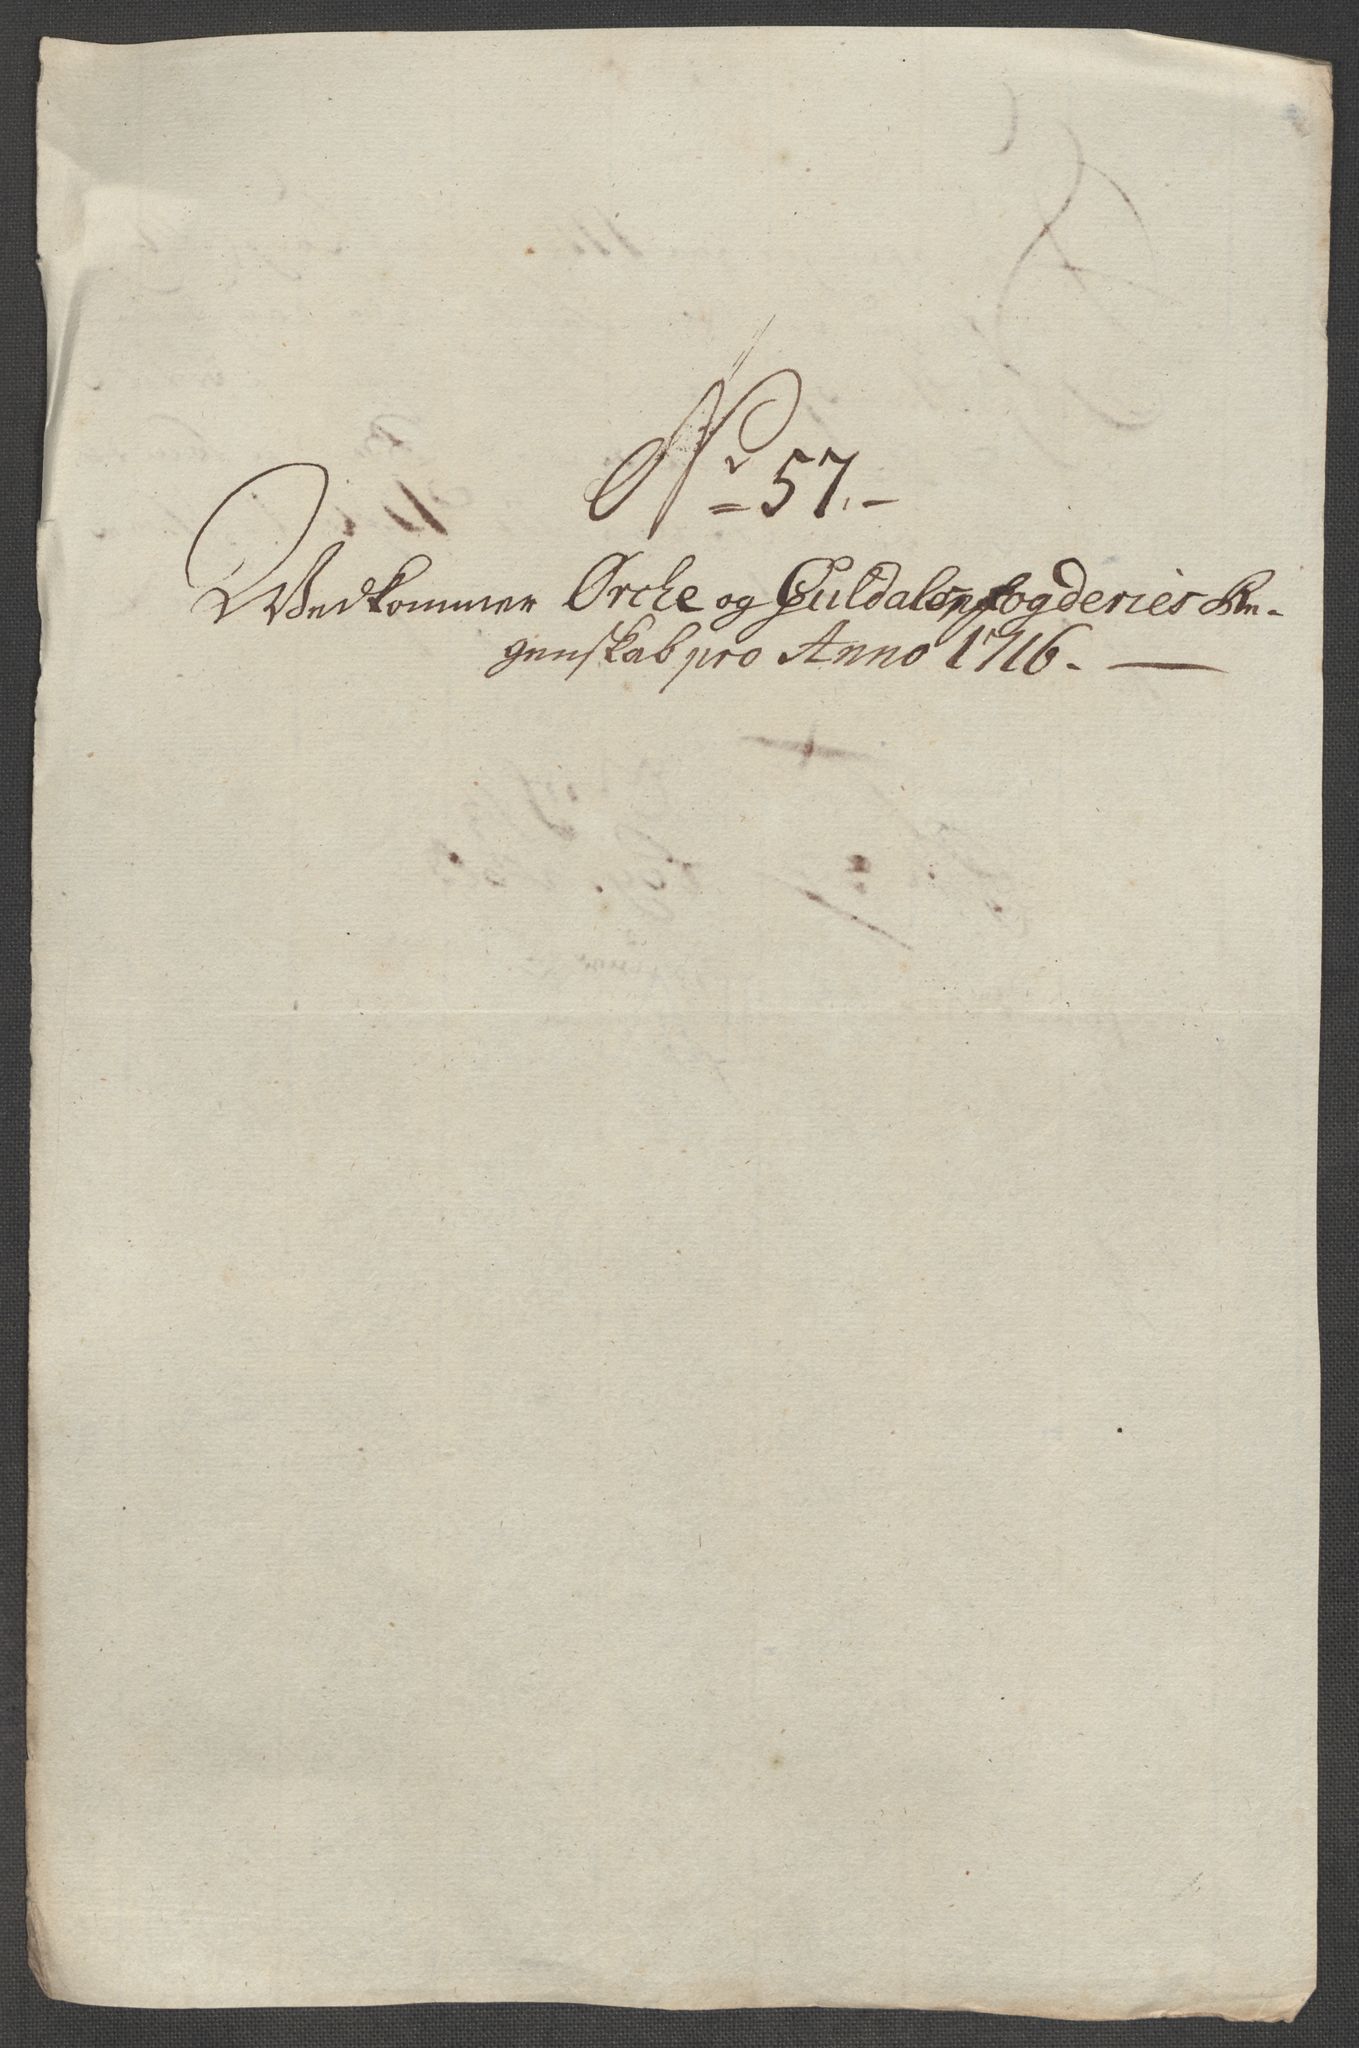 No 57.
Vedkommer Ørche og Guldals fogderies Re-
genskab pro Anno 1716.